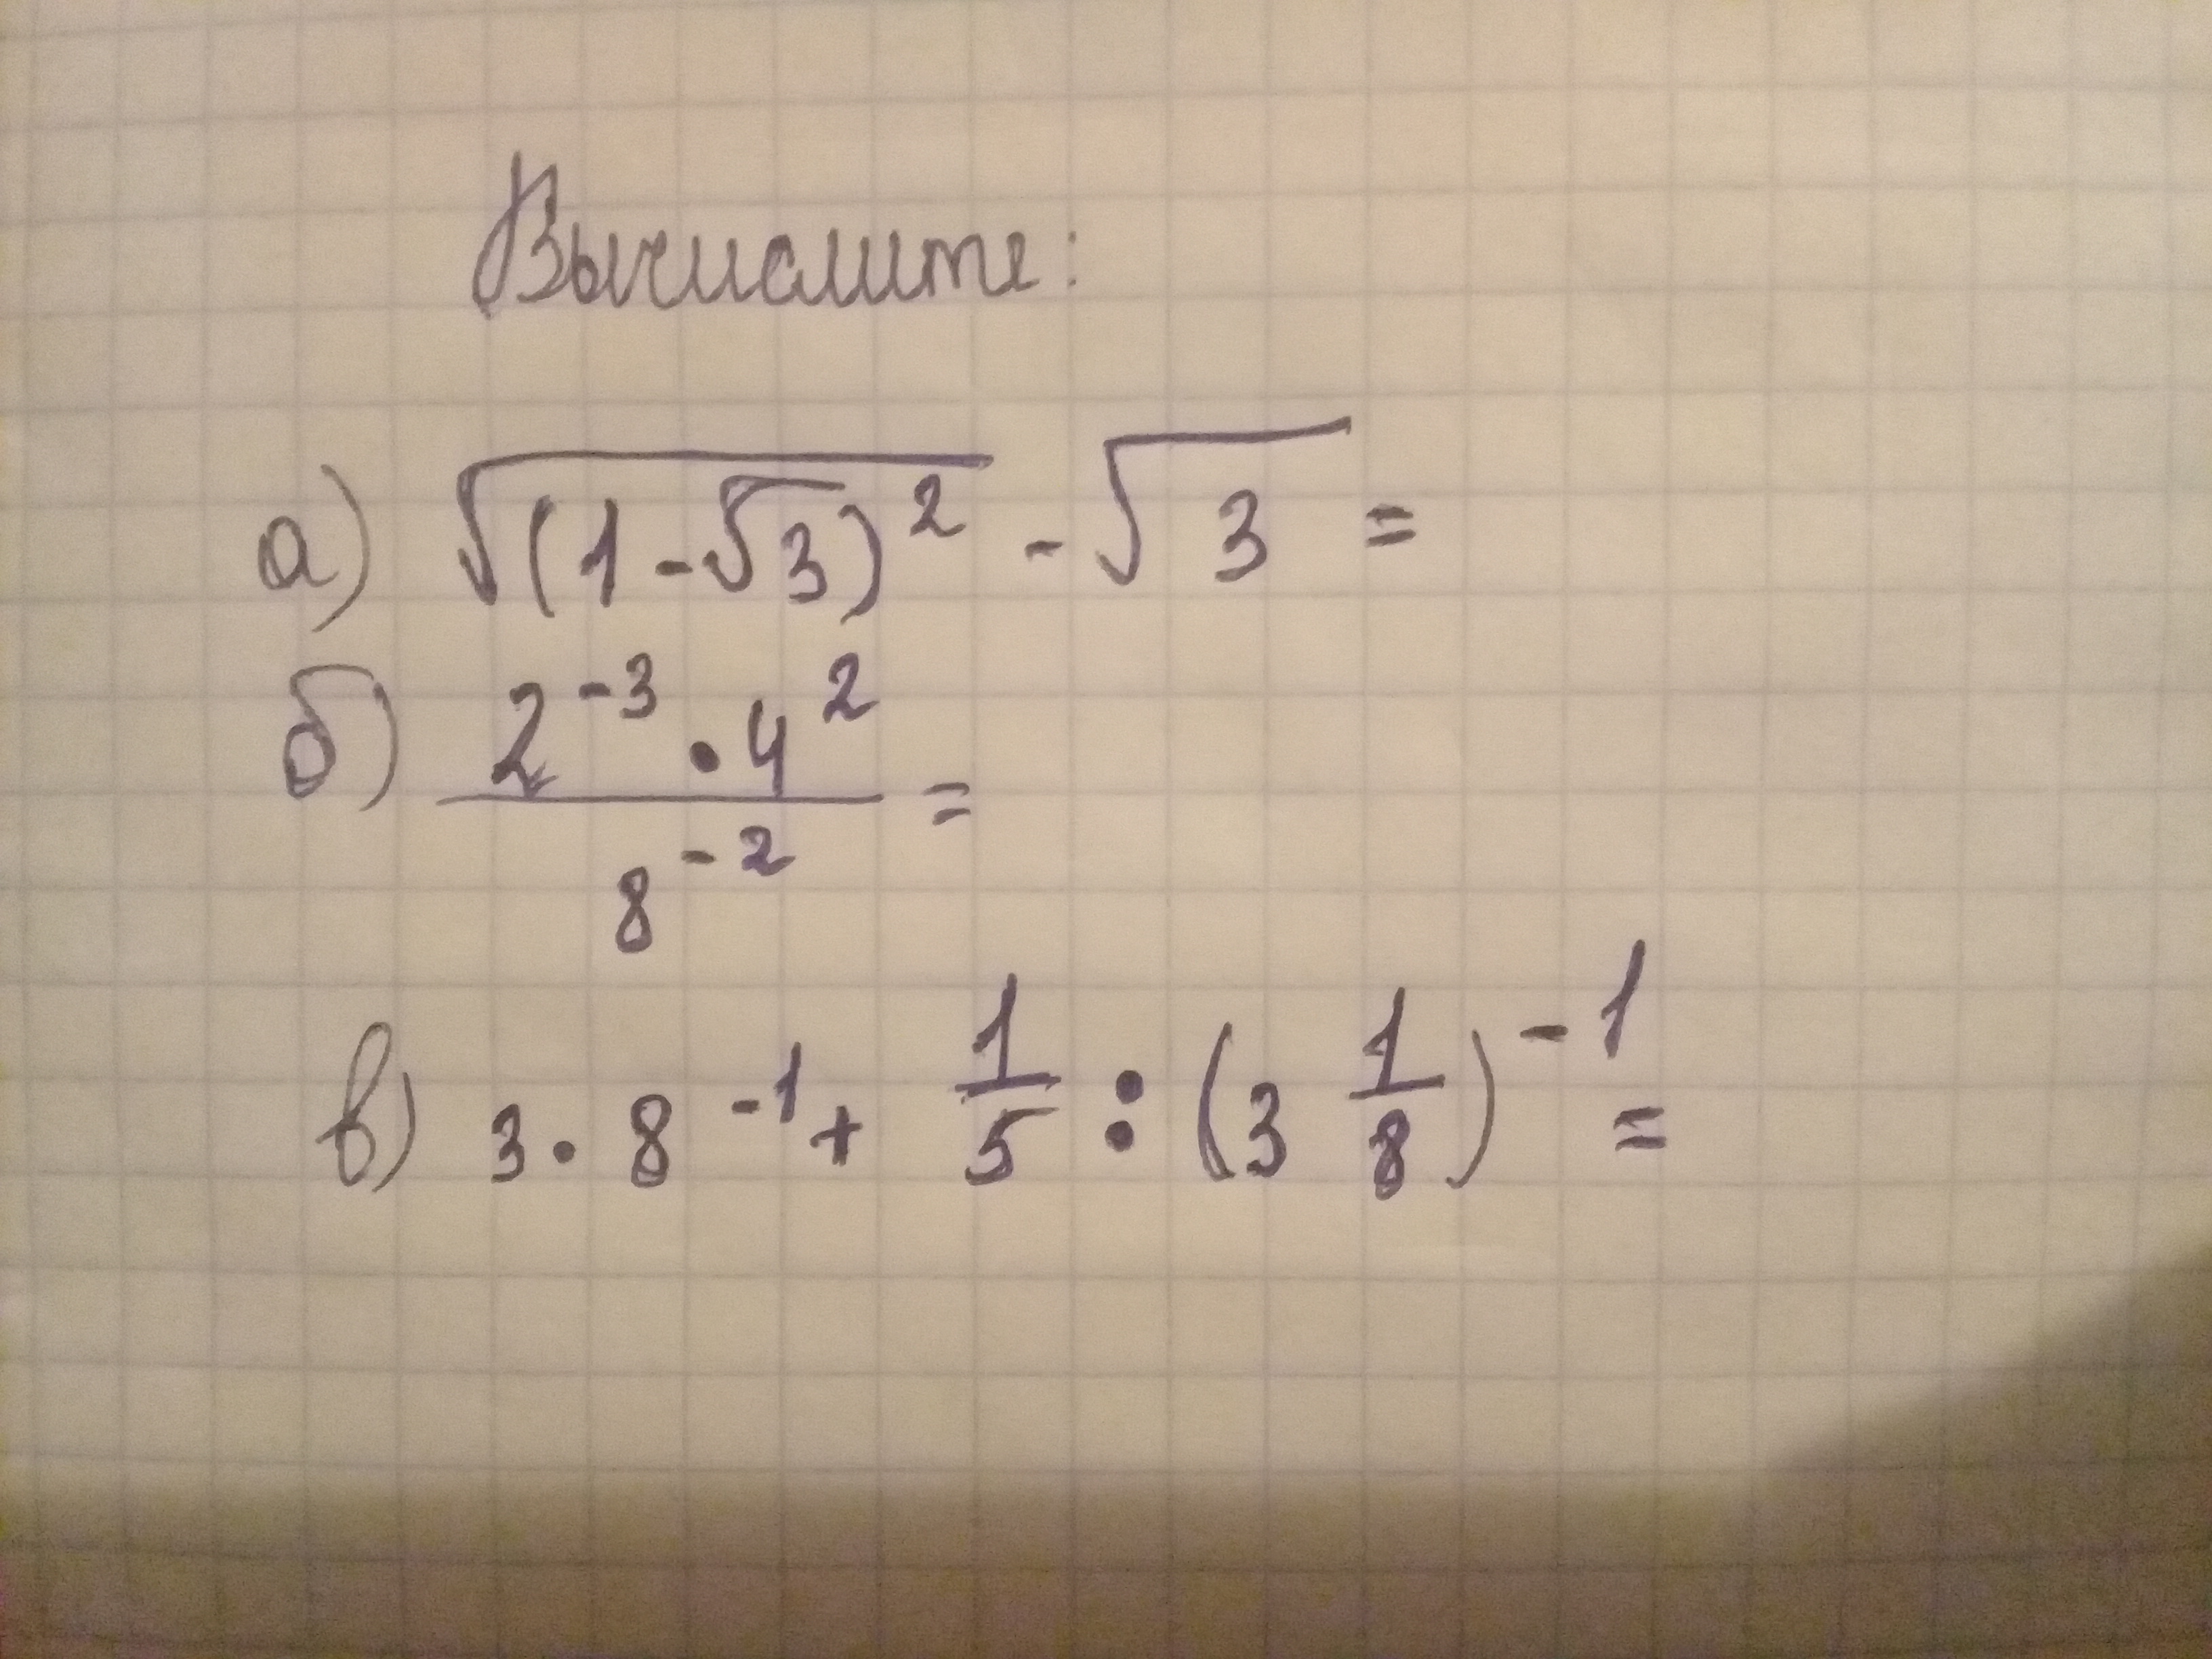 Вычислите:
а) √((1-√3)²) - √3 =
б) (2⁻³ · 4²) / 8⁻² =
в) 3 · 8⁻¹ + 1/5 : (3 1/8)⁻¹ =